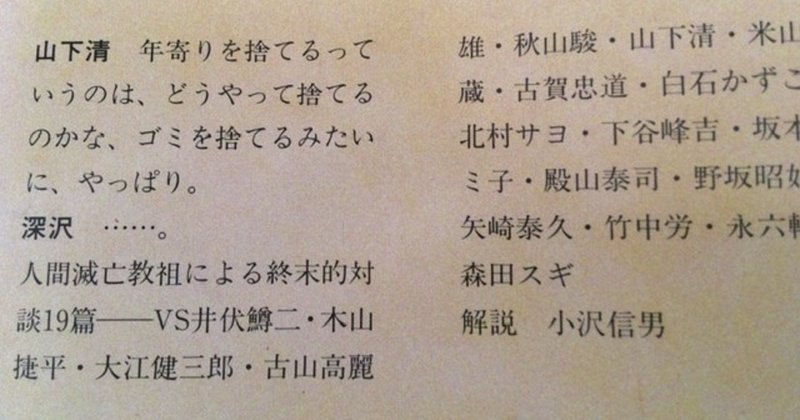 山下清　年寄りを捨てるって
いうのは、どうやって捨てる
のかな、ゴミを捨てるみたい
に、やっぱり。
深沢　……。
人間滅亡教祖による終末的対
談19篇――VS井伏鱒二・木山
捷平・大江健三郎・古山高麗
雄・秋山駿・山下清・米山
蔵・古賀忠道・白石かずこ
北村サヨ・下谷峰吉・坂本
ミ子・殿山泰司・野坂昭如
矢崎泰久・竹中労・永六輔
森田スギ
解説　小沢信男